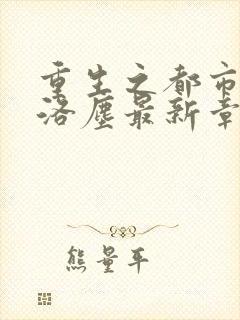 重生之都市
洛尘最新章
熊量平